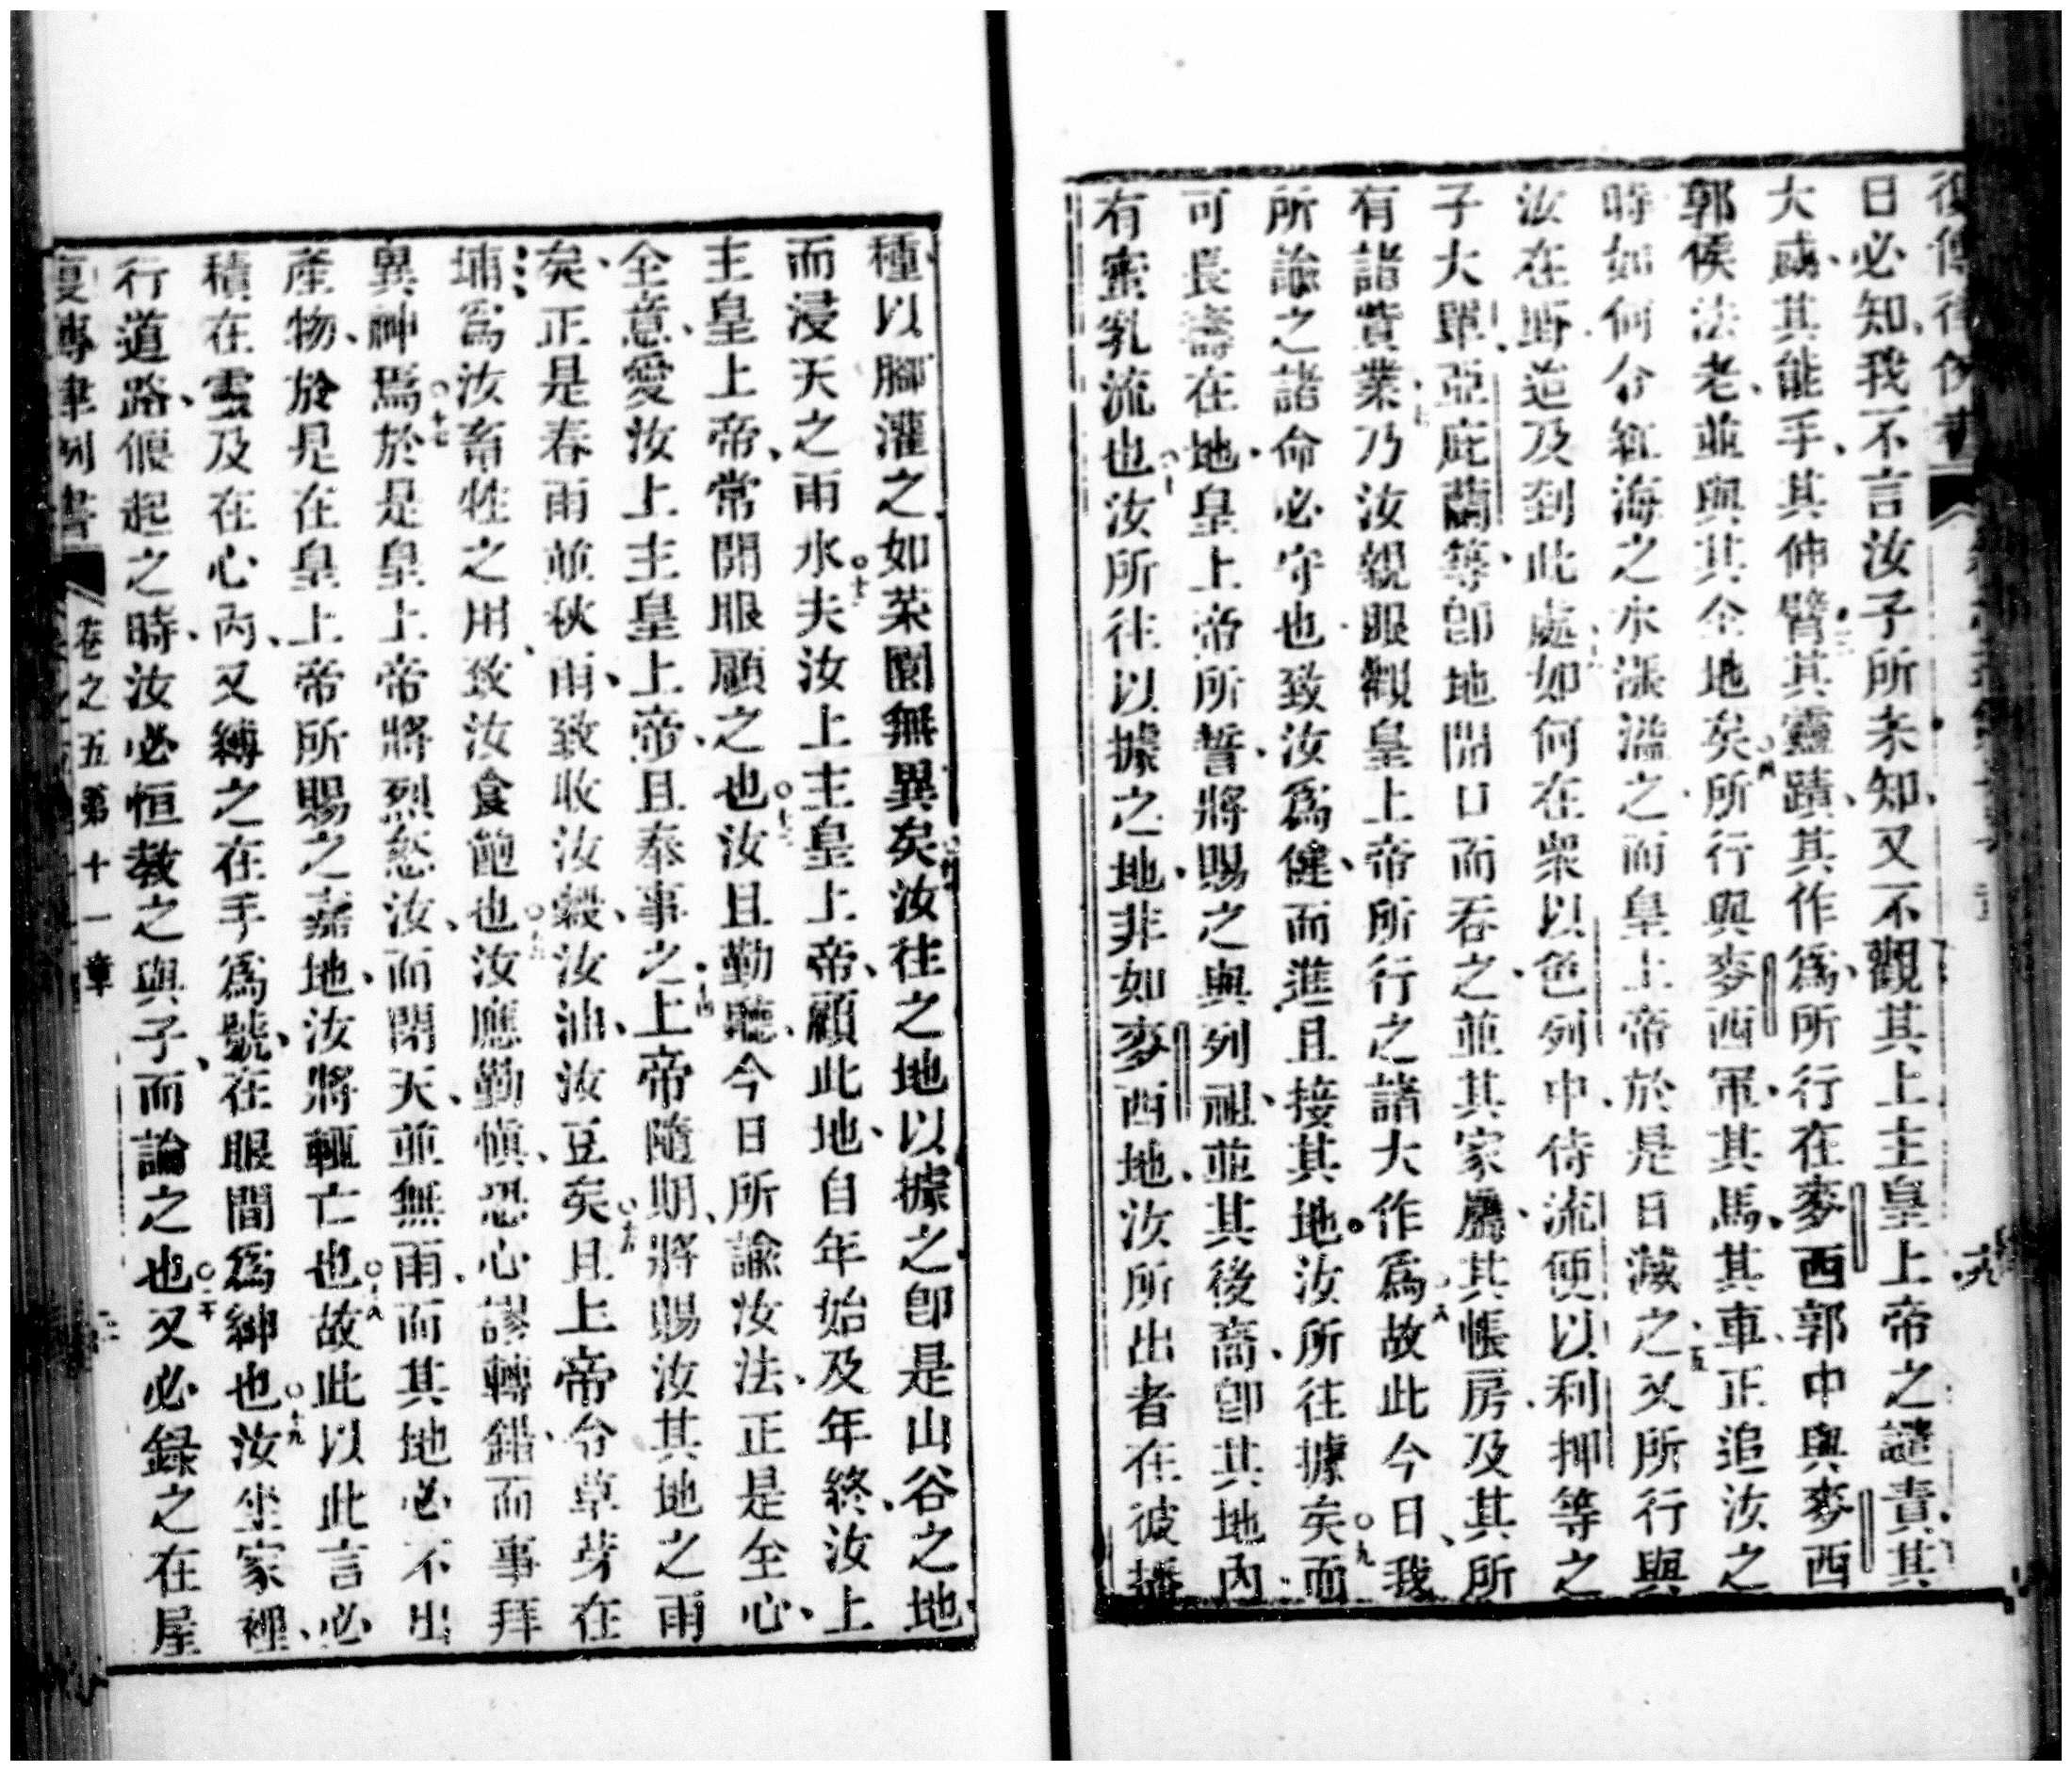 復傳律例書
日必知我不言汝子所未知又不觀其上主皇上帝之譴責其
大或其能手其伸臂其靈蹟其作為所行在麥西郭中與麥西
郭侯法老並與其全地矣所行與麥西軍其馬其車正追汝之
時如何令紅海之水漲溢之而皇上帝於是日滅之又所行與
汝在野迨及到此處如何在眾以色列中待流便以利押等之
子大單亞庇蘭等即地開口而吞之並其家屬其帳房及其所
有諸貲業乃汝親眼觀皇上帝所行之諸大作為故此今日我
所諭之諸命必守也致汝為健而進且接其地汝所往據矣而
可長壽在地皇上帝所誓將賜之與列祖並其後裔即其地內
有蜜乳流也汝所往以據之地非如麥西地汝所出者在彼播
種以腳灌之如菜園無異矣汝往之地以據之即是山谷之地
而浸天之雨水夫汝上主皇上帝顧此地自年始及年終汝上
主皇上帝常開眼顧之也汝且勤聽今日所諭汝法正是全心
全意愛汝上主皇上帝且奉事之上帝隨期將賜汝其地之雨
矣正是春雨並秋雨致收汝穀汝油汝豆矣且上帝令草芽在
埔為汝畜牲之用致汝食飽也汝應勤慎恐心謬轉錯而事拜
異神焉於是皇上帝將烈怒汝而閉天並無雨而其地必不出
產物於是在皇上帝所賜之嘉地汝將輒亡也故此以此言必
積在靈及在心內又縛之在手為號在眼間為紳也汝坐家裡
行道路偃起之時汝必恒教之與子而論之也又必錄之在屋
復傳律例書 卷之五第十一章